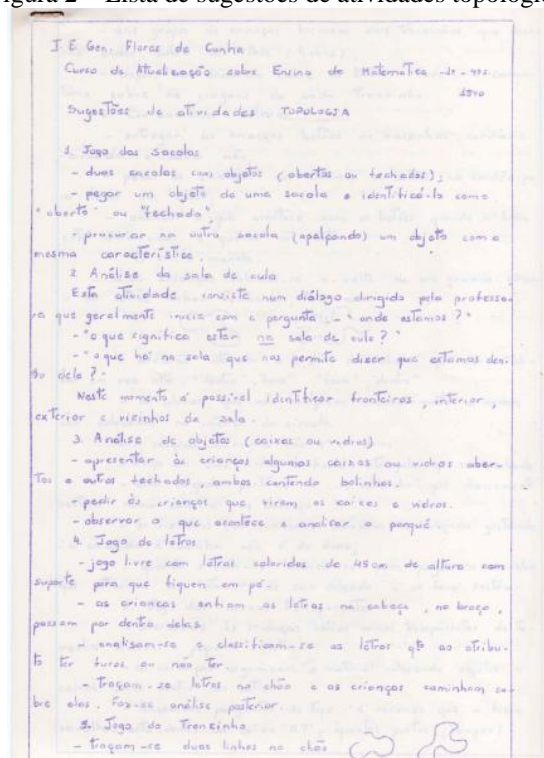 Figura 2 – Lista de sugestões de atividades topológic
I. E. Gen. Flores da Cunha
Curso de Atualização sobre Ensino de Matemática
1970
Sugestões de atividades TOPOLOGIA
1. Jogo das Sacolas
- duas sacolas com objetos (abertos ou fechados);
- pegar um objeto de uma sacola e identificá-lo como
"aberto" ou "fechado".
- procurar na outra sacola (apalpando) um objeto com a
mesma característica.
2. Análise da sala de aula
Esta atividade consiste num diálogo dirigido pela professo-
ra que geralmente inicia com a pergunta - "onde estamos?"
- "o que significa estar na sala de aula?"
- "o que há na sala que nos permite dizer que estamos den-
tro dela?"
Neste momento é possível identificar fronteiras, interior,
exterior e vizinhos da sala.
3. Análise de objetos (caixas ou vidros)
- apresentar às crianças algumas caixas ou vidros aber-
tos e outros fechados, ambos contendo bolinhas.
- pedir às crianças que virem as caixas e vidros.
- observar o que acontece e analisar o porquê
4. Jogo de letras
- jogo livre com letras coloridas de 45 cm de altura com
suporte para que fiquem em pé.
- as crianças enfiam as letras na cabeça, no braço,
passam por dentro delas.
- analisam-se e classificam-se as letras qto ao atribu-
to ter furos ou não ter
- traçam-se letras no chão e as crianças caminham so-
bre elas. Faz-se análise posterior.
5. Jogo do Trenzinho
- traçam-se duas linhas no chão